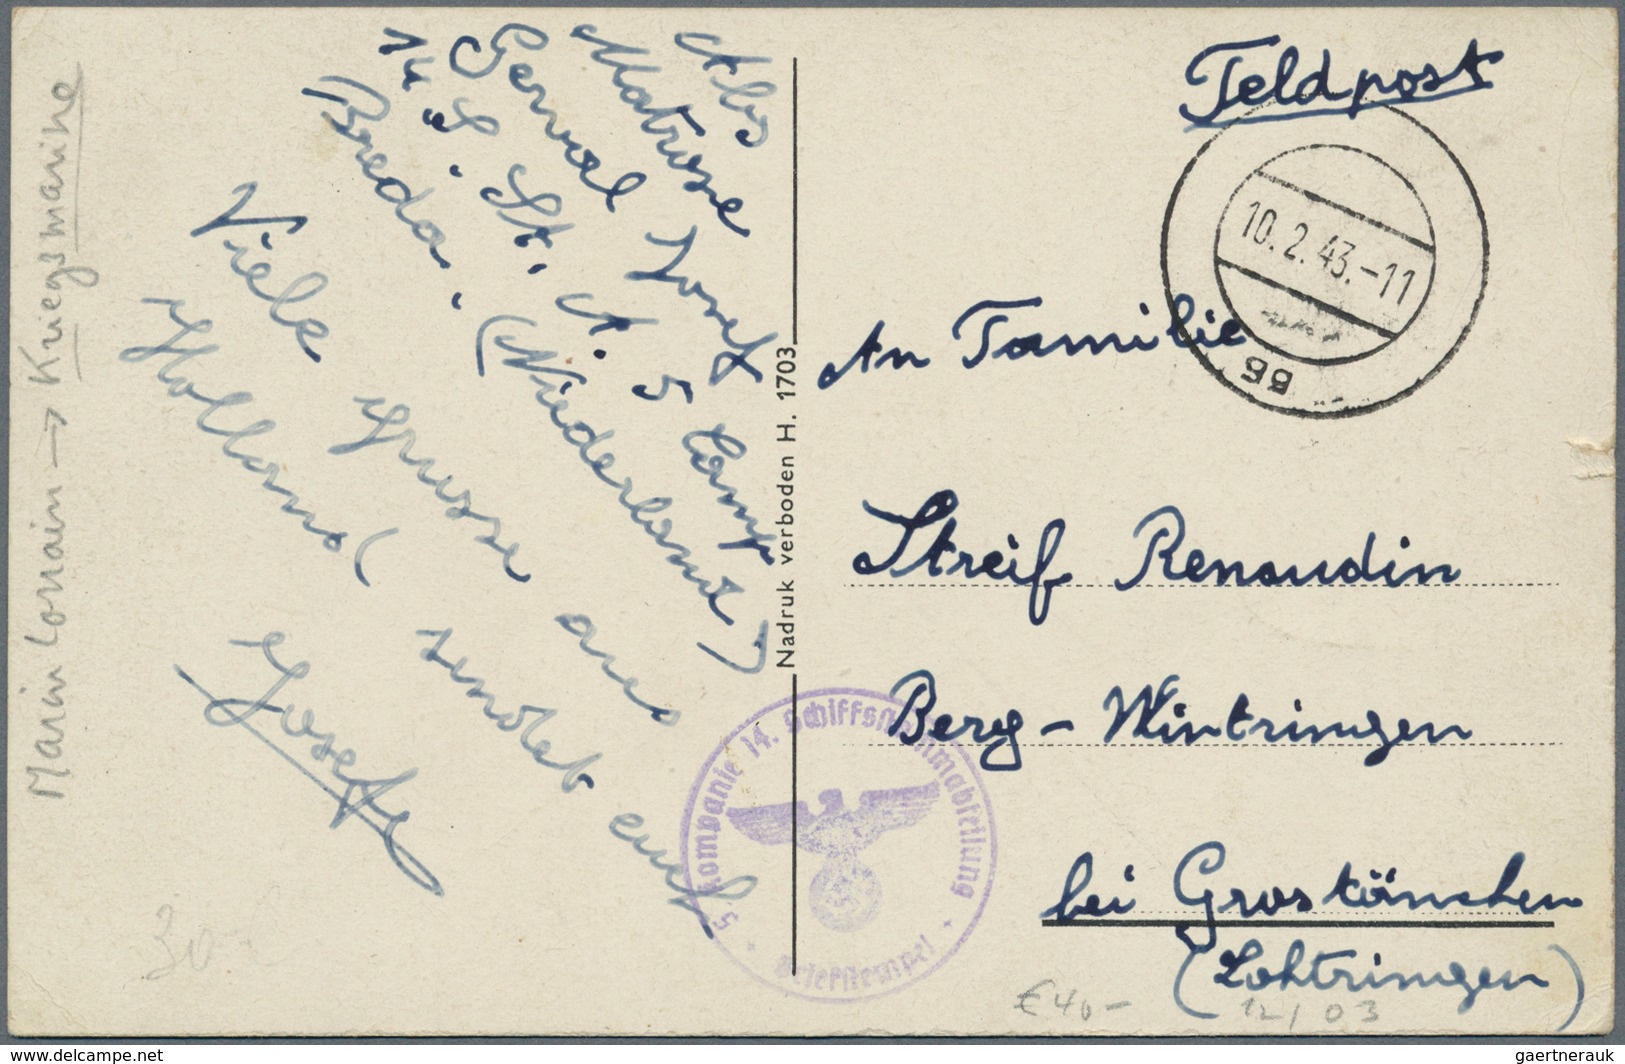 Marin Lorrain → Kriegsmarine
Abs
Matrose
Gerviel Josef
14. S. St. A. 5 Comp
Breda. (Niederlande)
Viele Grusse aus
Holland sendet euch
Josef
30-
Nadruk verboden H. 1703
Feldpost
10.2.43.-11
gg
An Familie
Streif Renaudin
Berg-Wintringen
bei Grostänchen
(Lohtringen)
5. Kompanie 14. Schiffsstammabteilung
* Briefstempel *
€ 40-
12/03
gaertnerauk